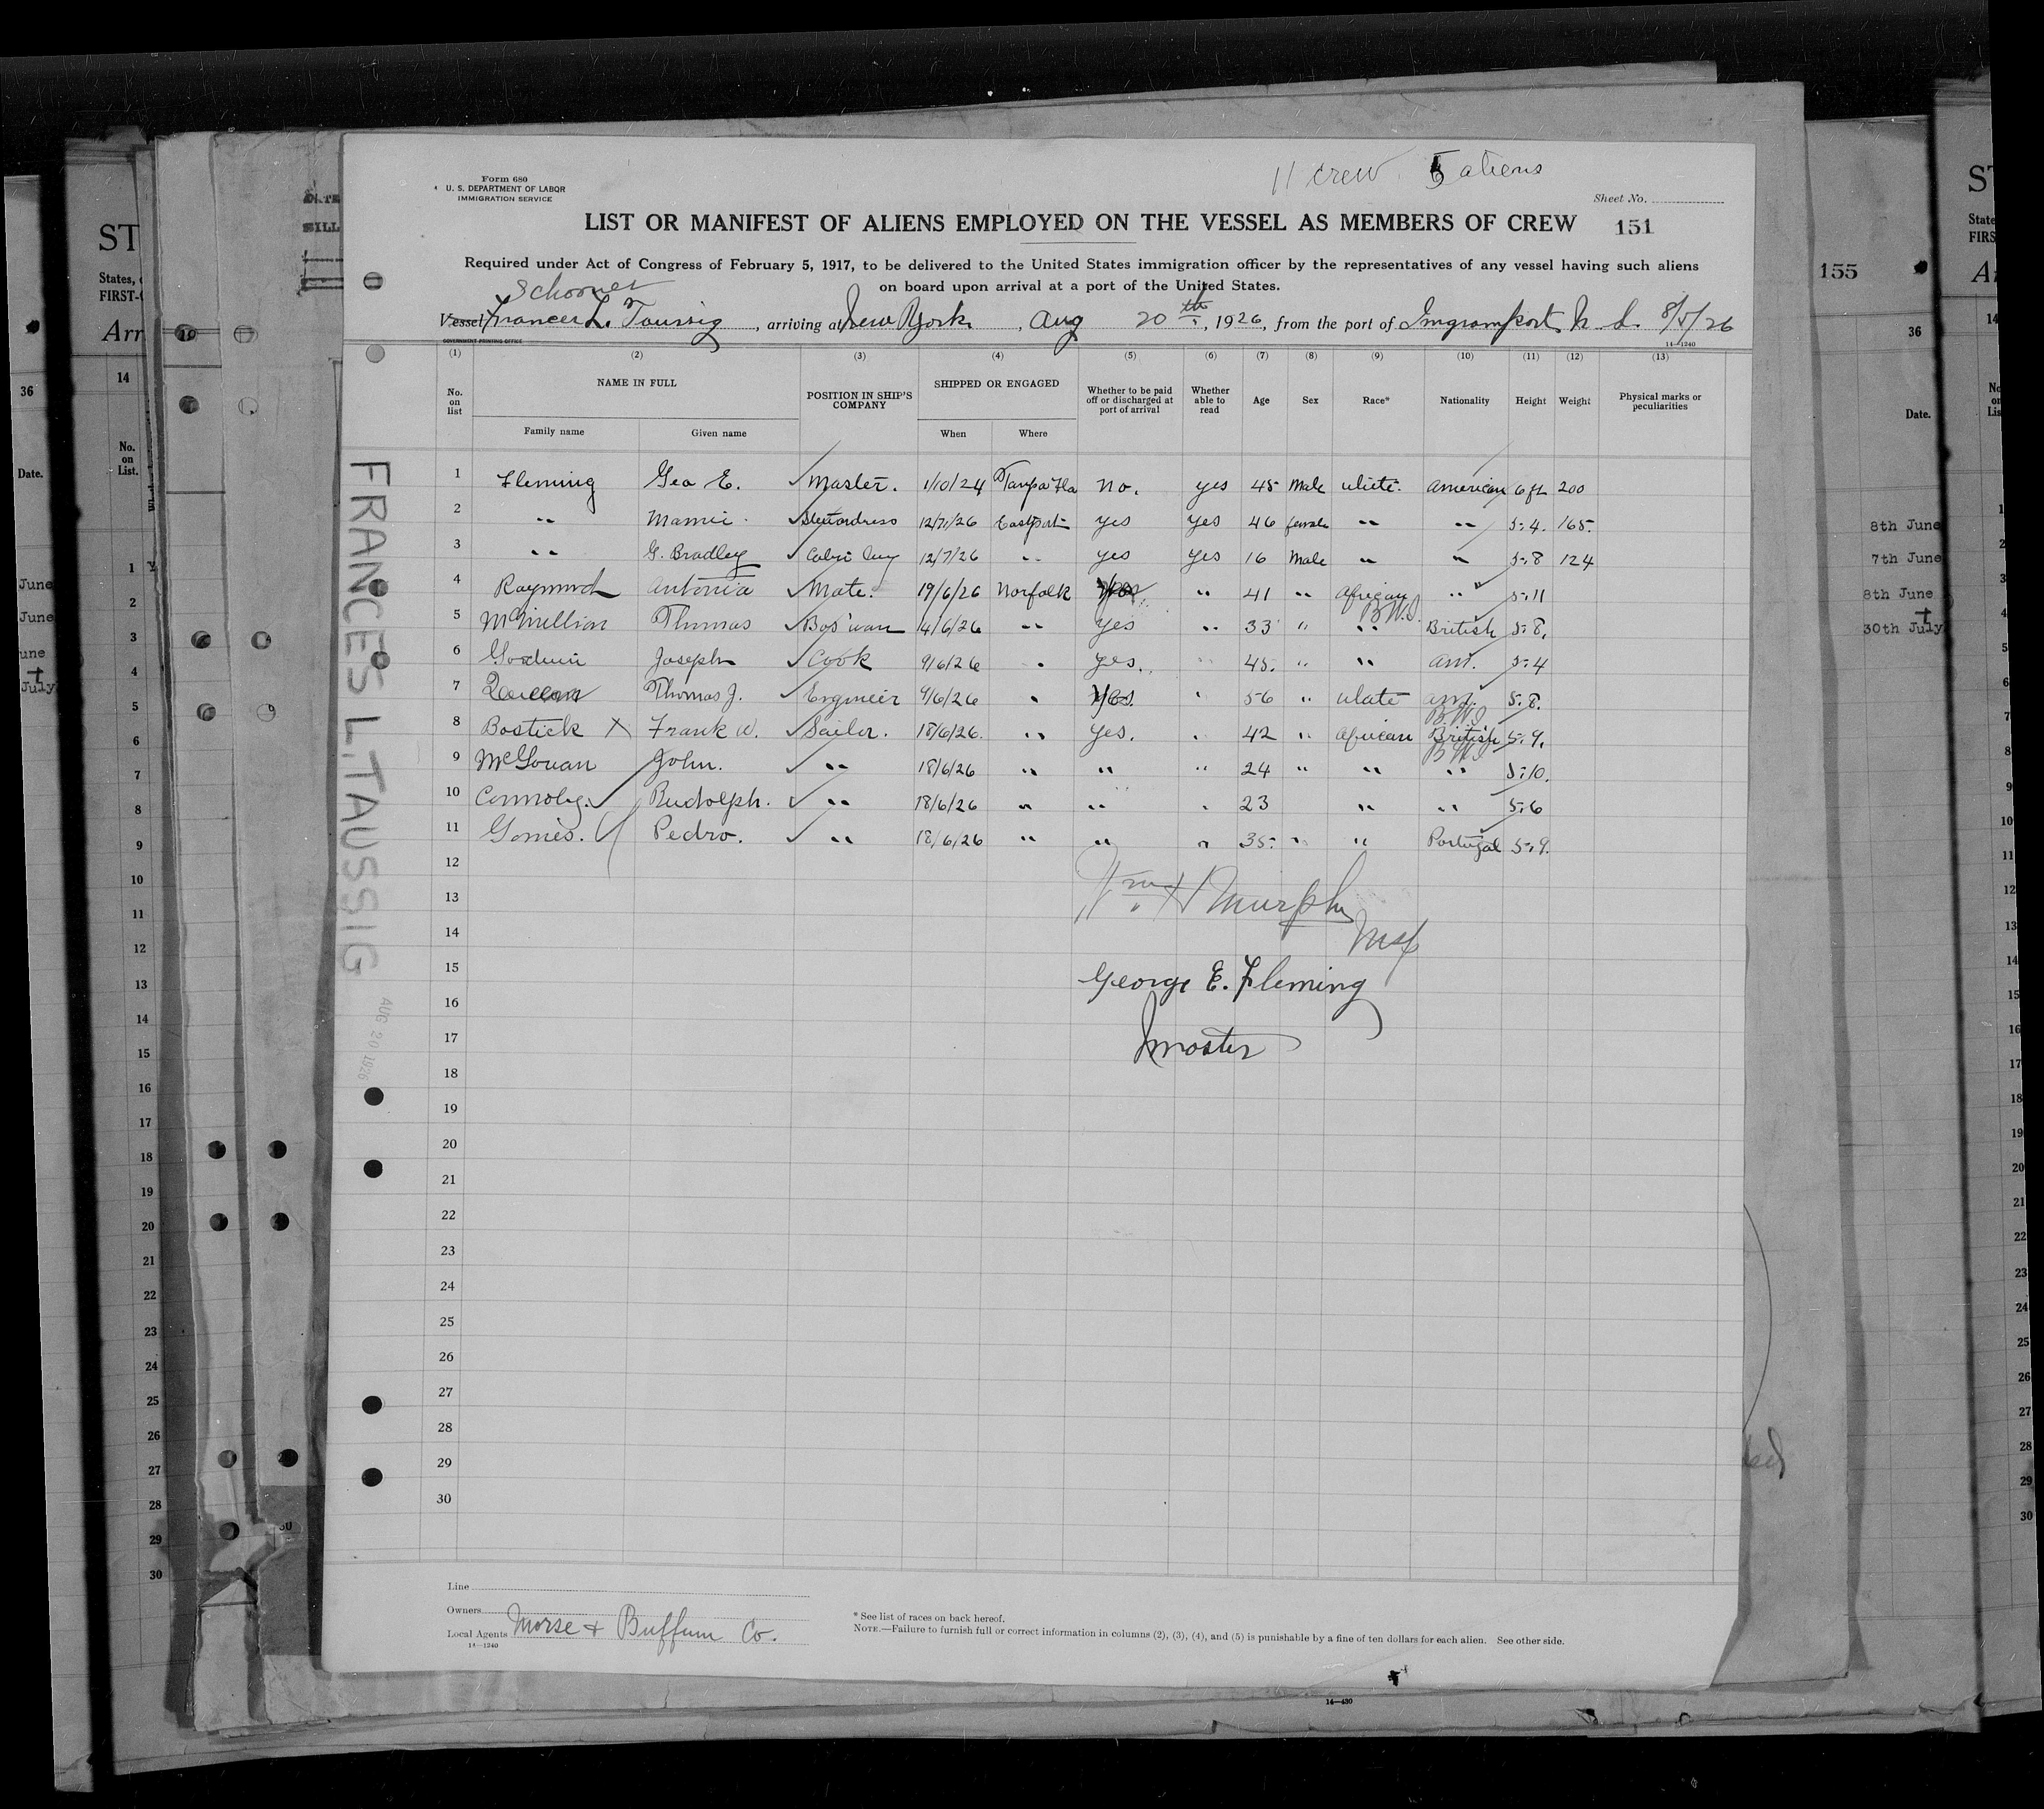 11 crew 5 aliens
Form 680
U. S. DEPARTMENT OF LABOR
IMMIGRATION SERVICE
Sheet No.
LIST OR MANIFEST OF ALIENS EMPLOYED ON THE VESSEL AS MEMBERS OF CREW 151
Required under Act of Congress of February 5, 1917, to be delivered to the United States immigration officer by the representatives of any vessel having such aliens
on board upon arrival at a port of the United States.
Schooner
Vessel Frances L. Taussig, arriving at New York, Aug 20th, 1926, from the port of Ingramport, N. S. 8/5/26
GOVERNMENT PRINTING OFFICE
14—1240
(1) (2) (3) (4) (5) (6) (7) (8) (9) (10) (11) (12) (13)
No. on list NAME IN FULL POSITION IN SHIP'S COMPANY SHIPPED OR ENGAGED Whether to be paid off or discharged at port of arrival Whether able to read Age Sex Race* Nationality Height Weight Physical marks or peculiarities
Family name Given name When Where
1 Fleming Geo E. Master. 1/10/24 Tampa Fla no. yes 45 Male white. American 6 ft 200
2 " Mamie. Stewardress 12/7/26 Eastport yes yes 46 female " " 5-4. 165.
3 " G. Bradley Cabin Boy 12/7/26 " yes yes 16 Male " " 5-8 124
4 Raymond Antonia Mate. 19/6/26 Norfolk " 41 " African " 5-11
5 McMillian Thomas Bos'wan 4/6/26 " Yes " 33 " " B.W.I. British 5-8.
6 Goodwin Joseph Cook 9/6/26 " yes. " 45. " " am. 5-4
7 Thomas J. Engineer 9/6/26 " Yes. " 56 " white am. 5-8.
8 Bostick X Frank W. Sailor. 18/6/26. " Yes. " 42 " African B.W.I. British 5-9.
9 McGowan John. " 18/6/26 " " " 24 " " B W I " 5-10.
10 Connoly. Rudolph. " 18/6/26 " " " 23 " " 5-6
11 Gomes. Pedro. " 18/6/26 " " " 35. " " Portugal 5-9.
12
13 Wm H Murphy
14 Insp
15 George E. Fleming
16
17 Master
18
19
20
21
22
23
24
25
26
27
28
29
30
FRANCES L. TAUSSIG
AUG 20 1926
Line
Owners
Local Agents Morse & Buffum Co.
14—1240
* See list of races on back hereof.
NOTE.—Failure to furnish full or correct information in columns (2), (3), (4), and (5) is punishable by a fine of ten dollars for each alien. See other side.
14—430
ST
States,
FIRST-
Arr
36
14
Date.
No.
on
List.
June
June
une
July
155
36
Date.
8th June
7th June
8th June
30th July